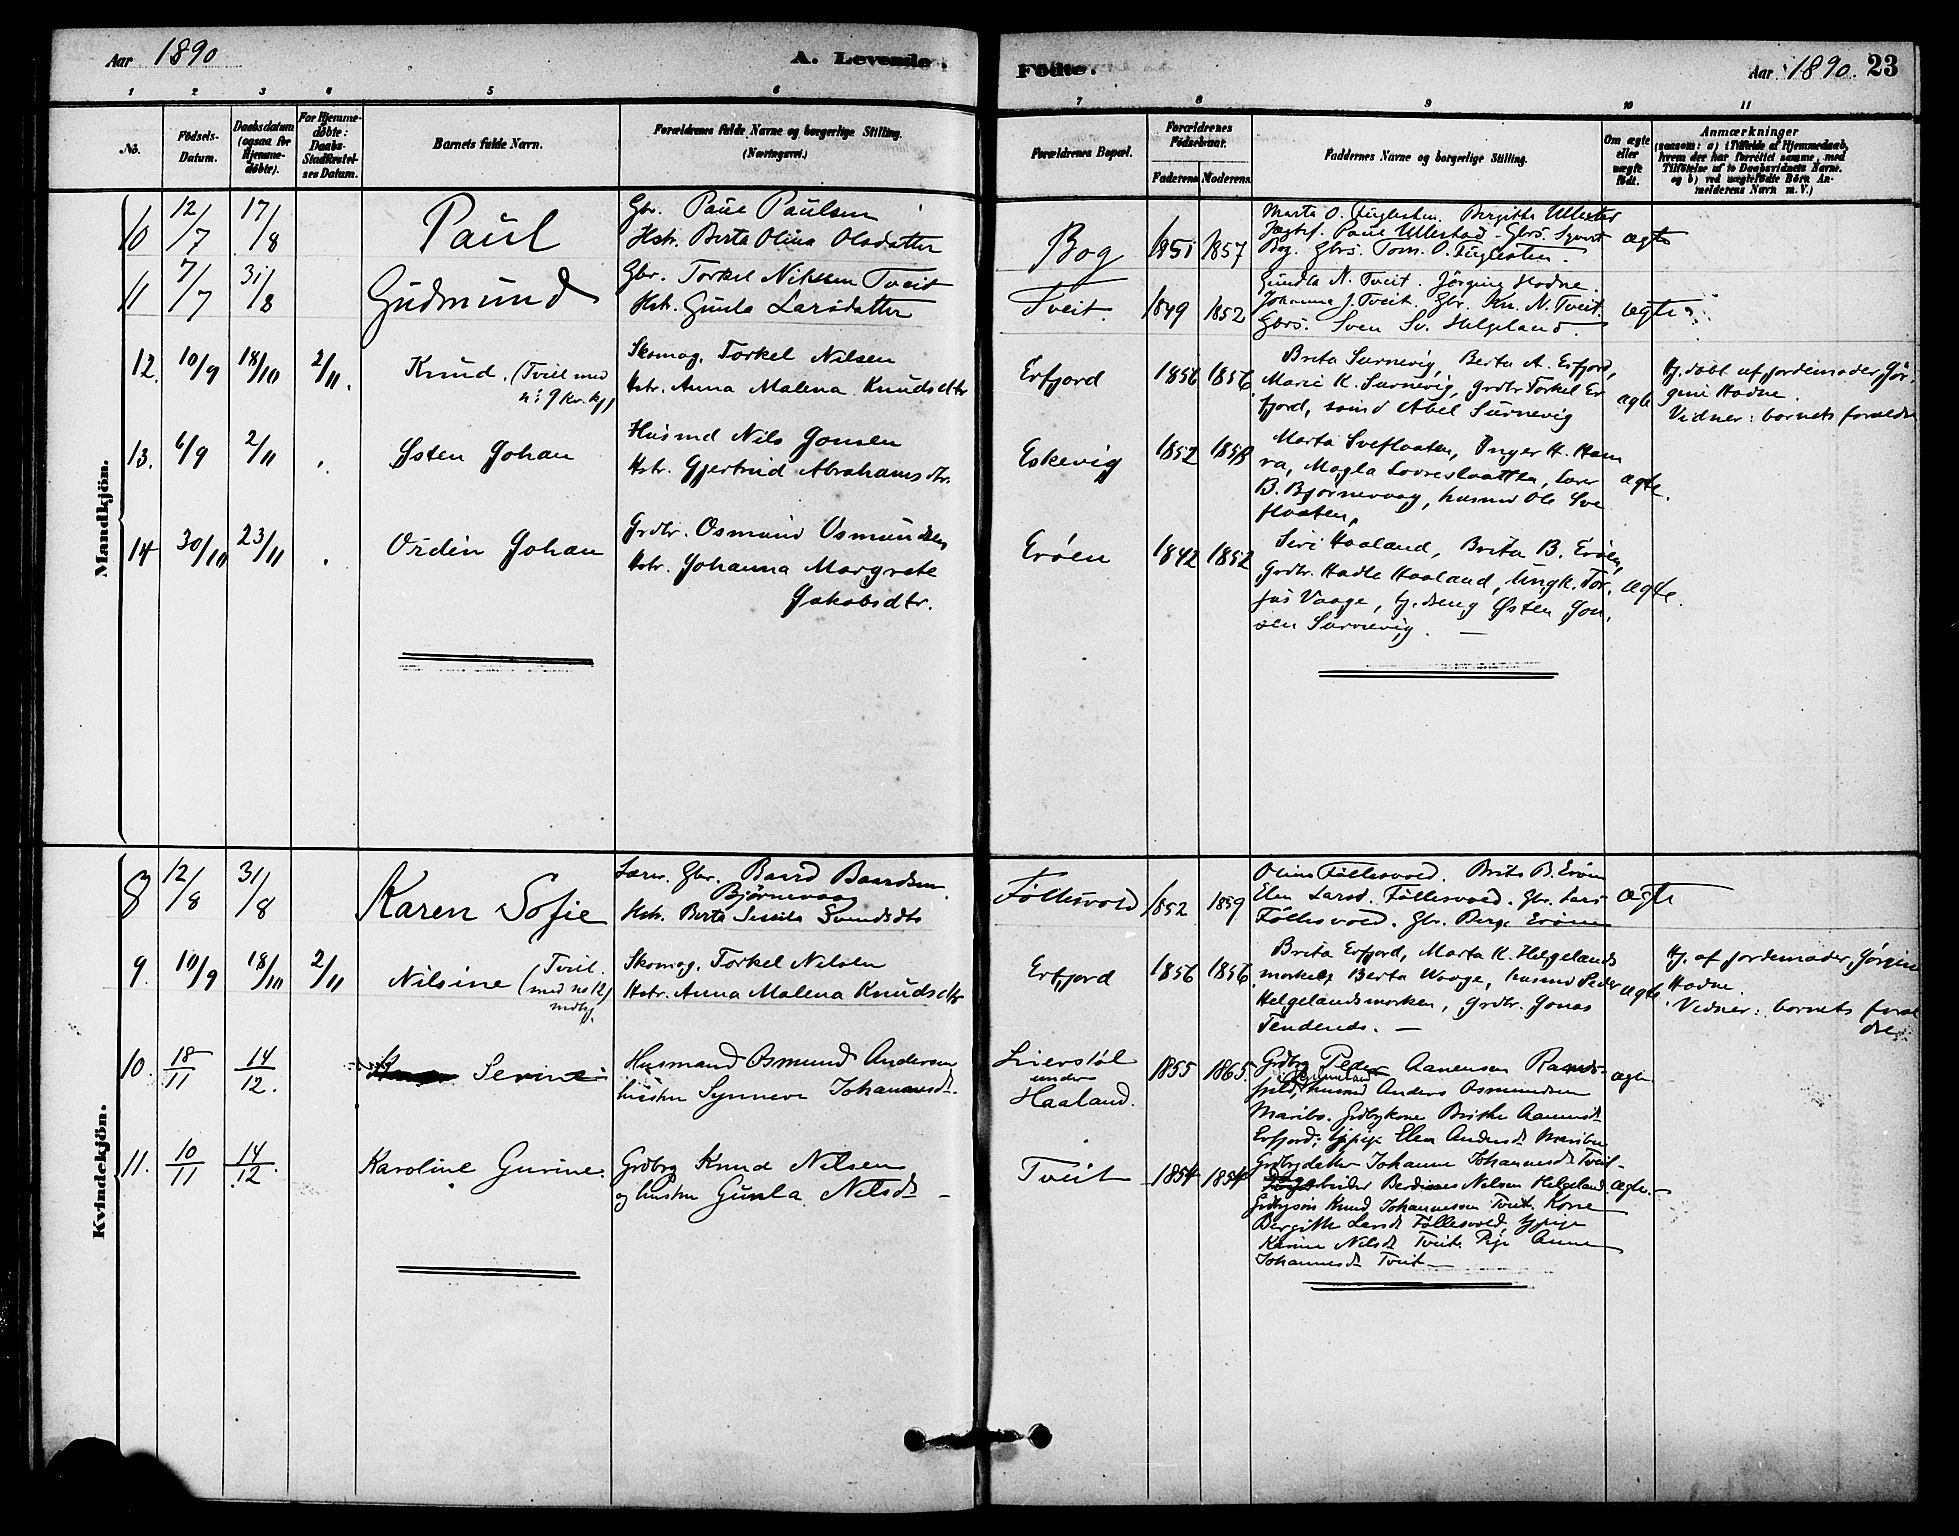 Aar 1890
A. Levende
Fødte.
Aar 1890. 23
1 2 3 4 5 6 7 8 9 10 11
No.
Fødsels-
Datum.
Daabsdatum
(ogsaa for
Hjemme-
døbte).
For Hjemme-
døbte:
Daabs-
Stadfæstel-
ses Datum.
Barnets fulde Navn.
Forældrenes fulde Navne og borgerlige Stilling.
(Næringsvei.)
Forældrenes Bopæl.
Forældrenes
Fødselsaar.
Faderens Moderens
Faddernes Navne og borgerlige Stilling.
Om ægte
eller
uægte
født.
Anmærkninger
(saasom: a) i Tilfælde af Hjemmedaab,
hvem der har forrettet samme, med
Tilføielse af to Daabsvidners Navne,
og b) ved uægtefødte Børn An-
melderens Navn m. V.)
Mandkjön.
10 12/7 17/8 Paul
Gbr. Paul Paulsen
Hstr. Berta Olina Olsdatter
Bog 1851 1857
Marta O. Fuglesten. Birgitha Ullestad
Paul Ullestad. Gbrs. Syvert
Bog. Gbrs. Tom. O. Fuglesten.
ægte
11 7/7 31/8 Gudmund
Gbr. Torkel Nilssen Tveit
Hstr. Gunla Larsdatter
Tveit. 1849 1852
Gunla N. Tveit. Jørgine Hodne.
Johanna J. Tveit. Gbr. Kn. N. Tveit.
Gbrs. Sven Sv. Helgeland.
ægte
12. 10/9 18/10 2/11. Knud, (Tvill. med
n: 9 kv. kj)
Skomag. Torkel Nilsen
Hstr. Anna Malena Knudsdtr
Erfjord 1856 1856.
Brita Surnevig, Berta A. Erfjord,
Marie K. Surnevig, grdbr Torkel Er
fjord, søind Abel Surnevig
ægte
Hj. døbt af jordemoder, Jør-
gine Hodne.
Vidner: barnets forældre
13. 6/9 2/11 Østen Johan
Husmd Nils Jonsen
Hstr. Gjertrud Abrahamsdtr.
Eskevig 1852 1858
Marta Svefloaten, Inger H. Ham
ra, Magla Lovreslaatten, lærer
B. Bjørnevaag, husmd Ole Sve
floaten,
ægte.
14 30/10 23/11 Ordin Johan
Grdbr. Osmund Osmundsen
Hstr. Johanna Margrete
Jakobsdtr.
Erøen 1842 1852
Siri Haaland, Brita B. Erøen,
Grdbr. Hadle Haaland, Ungk. Tor-
jus Vaage, tj. dreng Østen Jon,
sen Surnevig.
ægte.
Kvindekjön.
8 12/8 31/8 Karen Sofie
Lærer. Gbr. Baard Baardsen
Bjørnevaag
Hstr. Berta Sundsdtr
Føllesvold 1852 1859
Olina Føllesvold. Brita B. Erøen
Elen Larsd. Føllesvold. Gbr. Lars
Føllesvold. Gbr. Berge Erøen
ægte
9. 10/9 18/10 2/11 Nilsine (Tvil.
med no 12)
mdkj.
Skomag. Torkel Nilsen
Hstr. Anna Malena Knudsdtr
Erfjord 1856 1856
Brita Erfjord, Marta K. Helgelands
morken, Berta Vaage, husmd Peder
Helgelandsmorken, grdbr. Jonas
Tendenes.
ægte.
Hj. af jordemoder, Jørgine
Hodne.
Vidner: barnets foræl
dre.
10. 18/11 14/12. Serine
Husmand Osmund Andersen
hustru Synneve Johannesdt.
Lierstøl
under
Haaland. 1855 1865.
Grdbrg Peder Aanensen
husmd Anders Osmundsen
Maribo. Grdbrkone Brithe Aanensdt
Erfjord; tjpige Elen Andersdt Maribo
ægte
11. 10/11 14/12. Karoline Gurine.
Grdbrg Knud Nilsen
og hustru Gunla Nilsdt
Tveit 1854 1854
Grdbrgdatter Johanne Johannesdt Tveit
Berdines Nilsen Helgeland
Grdbrgsøn Knud Johannesen Tveit. Kone
Bergithe Larsdt Føllesvold, tjpige
Karine Nilsdt Tveit. Pige Anne
Johannesdt Tveit
ægte.